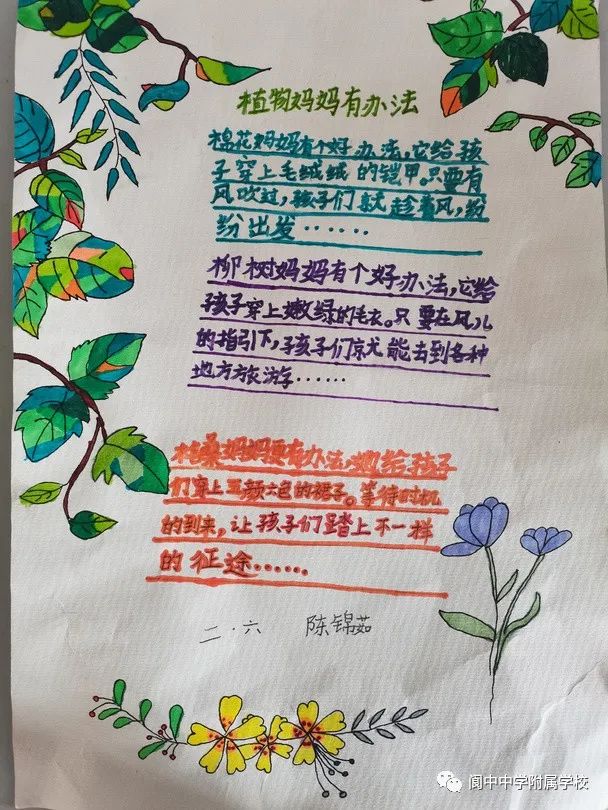 植物妈妈有办法
棉花妈妈有个好办法,它给孩
子穿上毛绒绒的铠甲。只要有
风吹过,孩子们就趁着风,纷
纷出发······
柳树妈妈有个好办法,它给
孩子穿上嫩绿的毛衣。只要在风儿
的指引下,孩子们就能去到各种
地方旅游······
格桑妈妈更有办法,她给孩子
们穿上五颜六色的裙子。等待时机
的到来,让孩子们踏上不一样
的征途······
二·六 陈锦茹
阆中中学附属学校